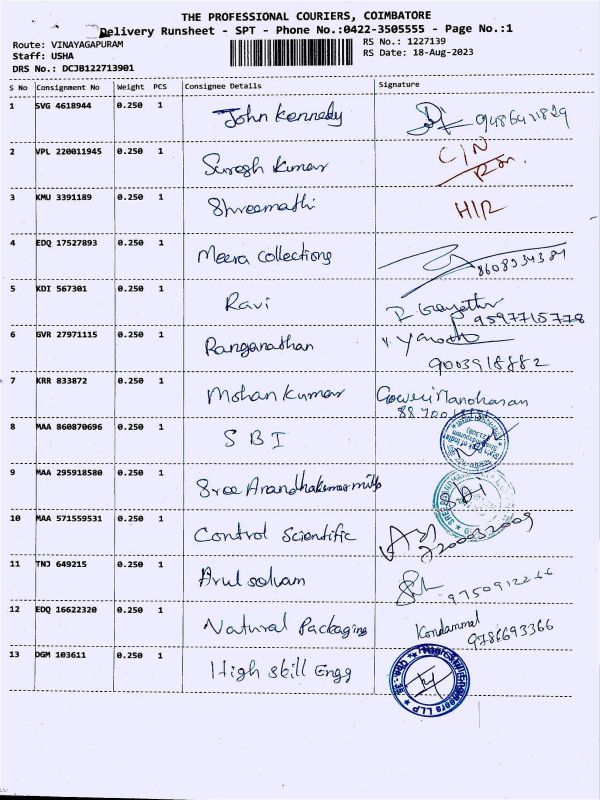 THE PROFESSIONAL COURIERS, COIMBATORE
Delivery Runsheet - SPT - Phone No.:0422-3505555 - Page No.:1
Route: VINAYAGAPURAM
Staff: USHA
DRS No.: DCJB122713901
RS No.: 1227139
RS Date: 18-Aug-2023
S No Consignment No Weight PCS Consignee Details Signature
1 SVG 4618944 0.250 1 John Kennedy
2 VPL 220011945 0.250 1 Suresh Kumar C/N
3 KMU 3391189 0.250 1 Shreemathi H/R
4 EDQ 17527893 0.250 1 Meera Collections
5 KDI 567301 0.250 1 Ravi
9597715778
6 GVR 27971115 0.250 1 Ranganathan
9003918882
7 KRR 833872 0.250 1 Mohan Kumar Gowri Manoharan
8 MAA 860870696 0.250 1 SBI
9 MAA 295918580 0.250 1 Sree Anandhakumar mills
10 MAA 571559531 0.250 1 Control Scientific
7200032009
11 TNJ 649215 0.250 1 Arul selvam
9750912266
12 EDQ 16622320 0.250 1 Natural Packaging Kondammal
9786693366
13 DGM 103611 0.250 1 High skill Engg